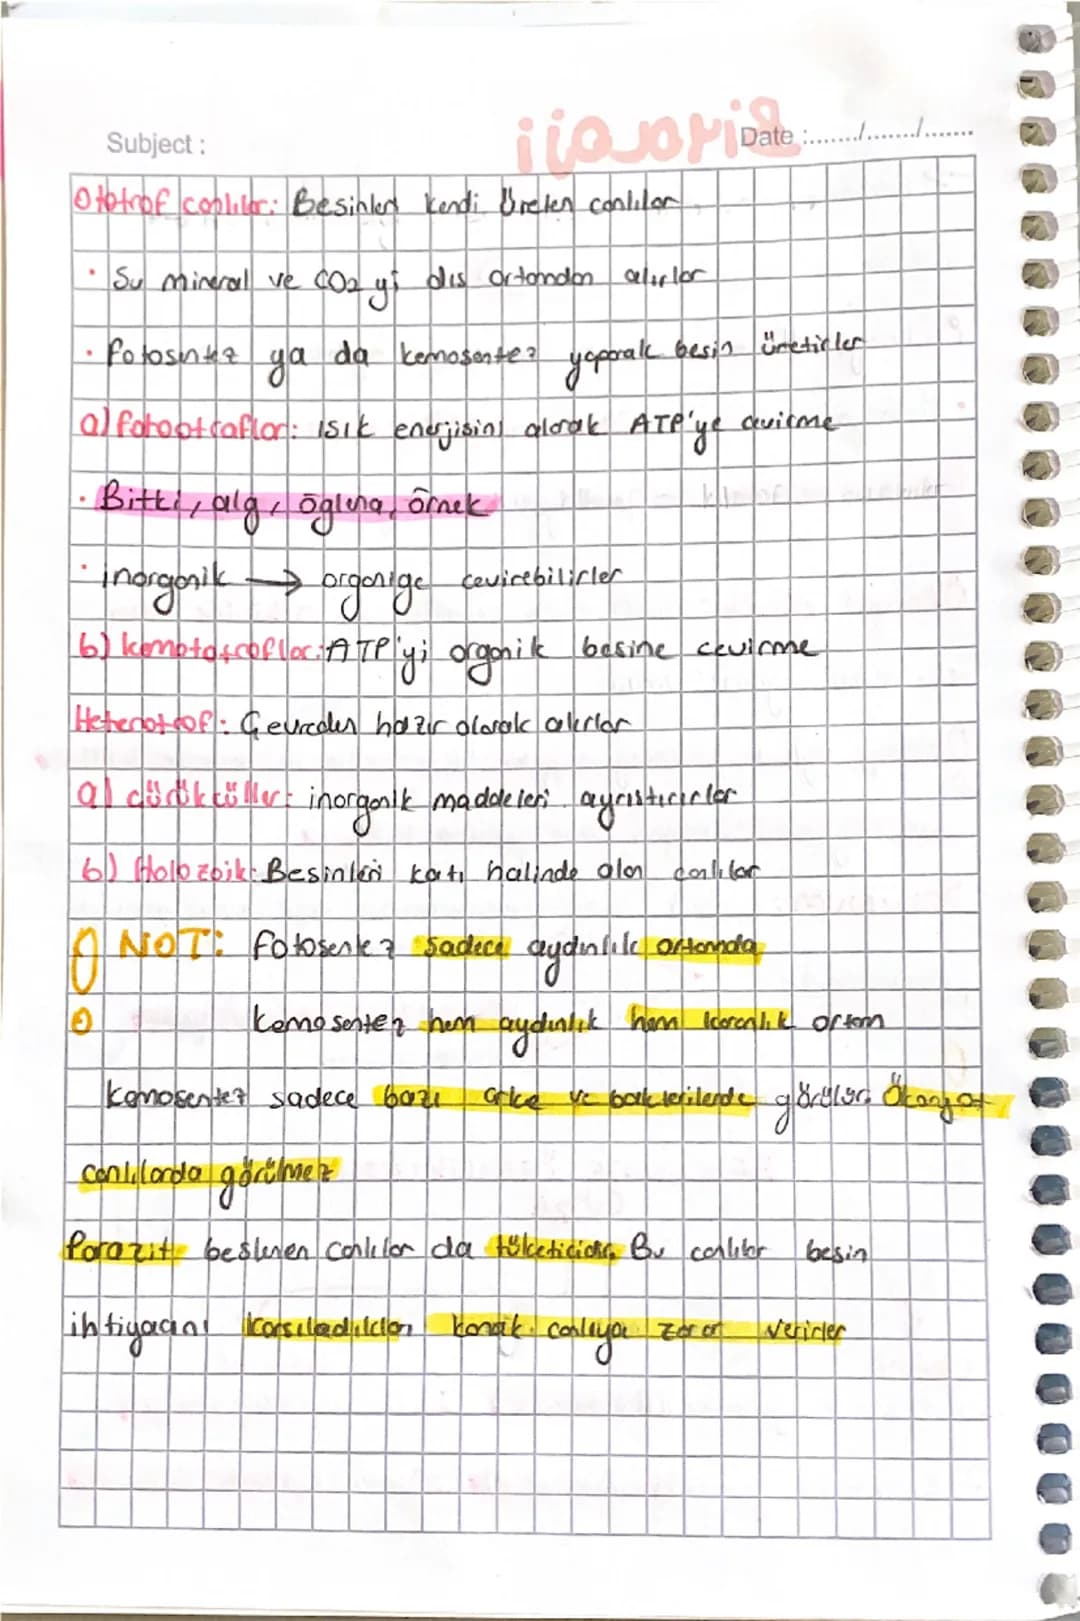 Subject :
Date :......./......./.......
Ototrof canlılar: Besinleri kendi Üreten canlılar
• Su mineral ve CO2 yi dıs ortamdan alırlar
• fotosentez ya da kemosentez yaparak besin üretirler
a) fotootroflar: ısık enerjisini alarak ATP'ye cevirme
• Bitki, alg, öglena, örnek
• inorganik → organige cevirebilirler
b) kemototroflar: ATP'yi organik besine cevirme
Heterotrof: Cevreden hazır olarak alırlar
a) cürükcüller: inorganik maddeleri ayrıstırırlar
b) Holozoik: Besinleri katı halinde alan canlılar
NOT: fotosentez sadece aydınlık ortamda
kemosentez hem aydınlık hem karanlık ortam
kemosentez sadece bazı arke ve bakterilerde görülür. Ökaryot
canlılarda görülmez
Parazit beslenen canlılar da tüketicidir. Bu canlılar besin
ihtiyacını karsıladıkları konak canlıya zarar verirler